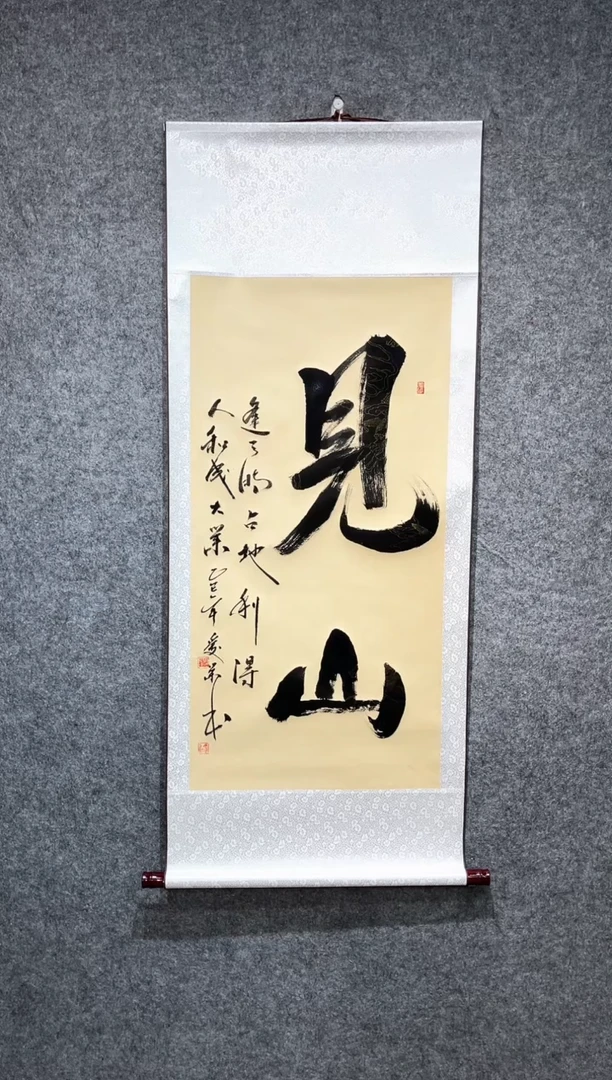 見山
逢天時占地利得
人和成大業乙巳年